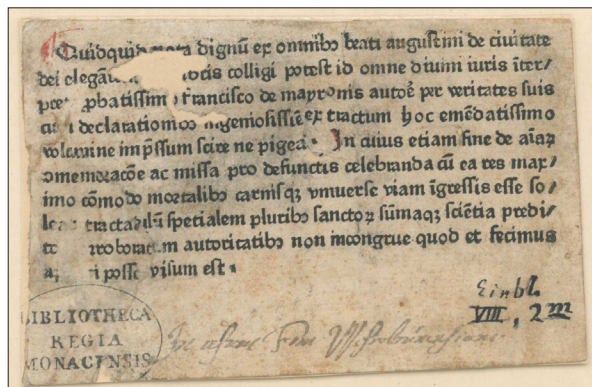 Quidquid nota dignū ex omnibꝰ beati augustini de ciuitate
dei elegā colligi potest id omne diuini iuris īter⸗
ꝓbatissimo francisco de mayronis autoē per veritates suis
declarationibꝰ ingeniosissīe extractum hoc emēdatissimo
volumine impssum scire ne pigeat. In cuius etiam fine de aīaꝝ
ꝯmemoracōe ac missa pro defunctis celebranda cū ea res maxⸯ
imo cōmodo mortalibꝰ carnisqꝫ vniuerse viam īgressis esse so⸗
tractatulū specialem pluribꝰ sanctoꝝ sūmaqꝫ sciētia predi⸗
roboratum autoritatibꝰ non incongrue quod et fecimus
posse visum est.
Einbl.
VIII, 2m
BIBLIOTHECA
REGIA
MONACENSIS